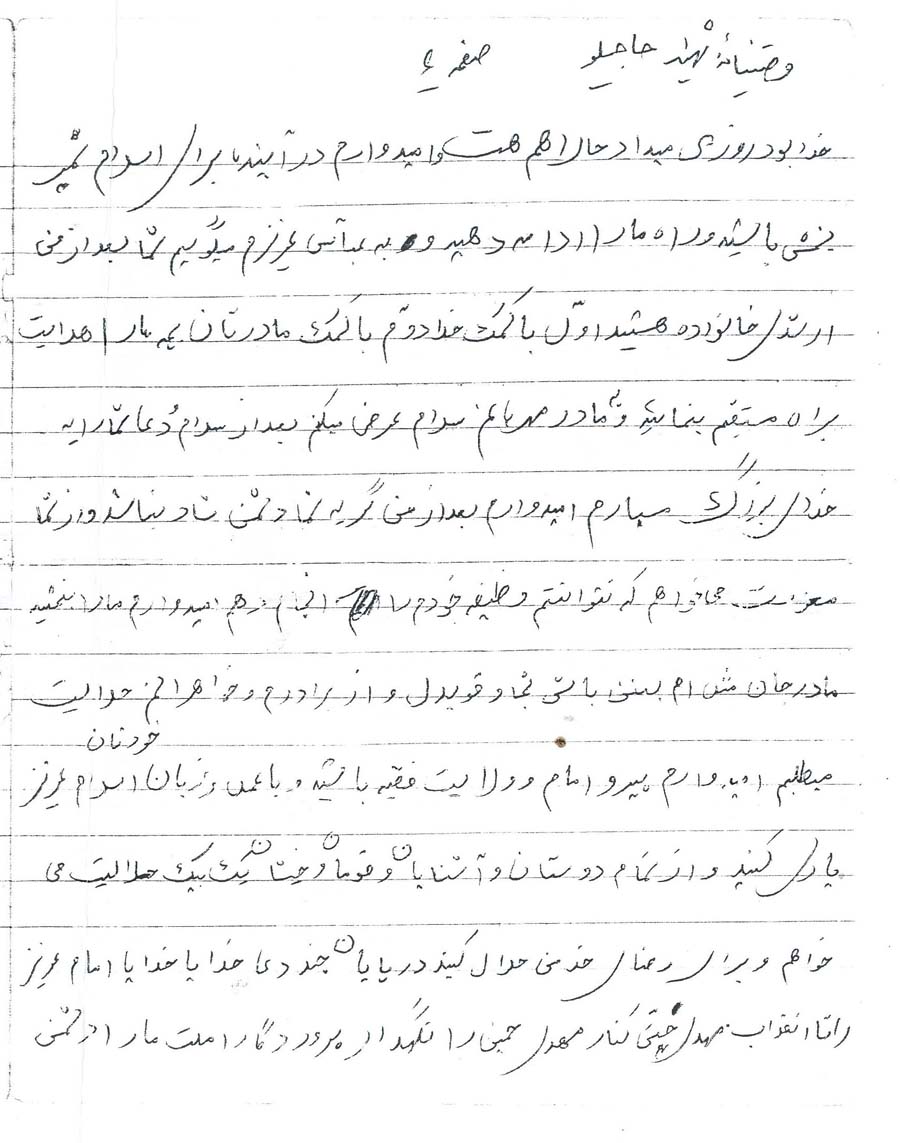 وصیتنامهٔ شهید حاجیلو صفحه ۴
خدا بود روزی میداد حالا هم هست و امیدوارم در آینده برای اسلام ثمر
بخش باشید و راه ما را ادامه دهید و به عباس عزیزم میگویم شما بعد از من
ارشد خانواده هستید اوّل با کمک خدا دوّم با کمک مادرتان بچه ها را هدایت
براه مستقیم بنمائید و مادر مهربانم سلام عرض میکنم بعد از سلام دُعا شما را به
خدای بزرگ میسپارم امیدوارم بعد از من گریه نکنید دشمن شاد نباشد و از شما
معذرت میخواهم که نتوانستم وظیفه خودم را انجام دهم امیدوارم ما را ببخشید
مادر جان مثل ام باش و از برادرم و خواهرانم حلالیت
میطلبم امیدوارم پیرو امام و ولایت فقیه باشید و با عمل و زبان خودتان اسلام عزیز
یاری کنید و از تمام دوستان و آشنایان و قومان و خویشان یک بیک حلالیت می
خواهم و برای رضای خدا من حلال کنید در پایان چند دعا خدایا خدایا امام عزیز
را تا انقلاب مهدی حتی کنار مهدی خمینی را نگهدار پروردگارا ملت ما را از دشمن